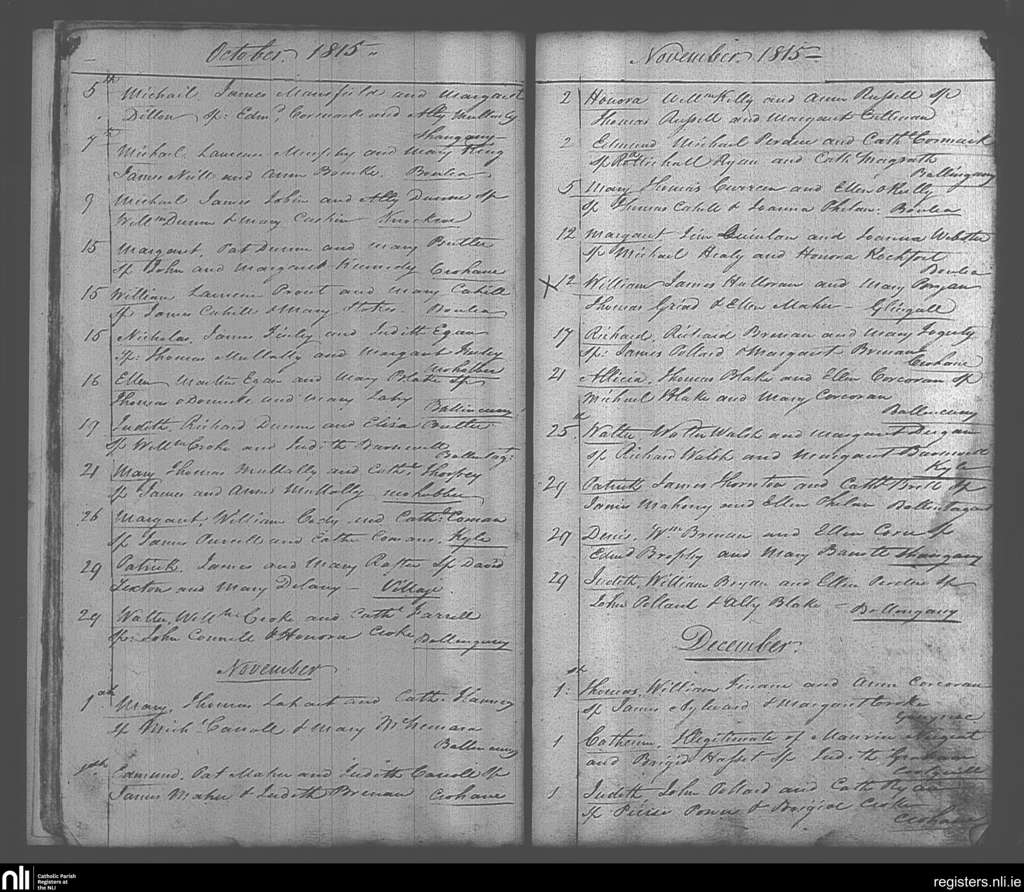 October. 1815
5th Michail, James Mansfield and Margaret
Dillon Sp: Edmd Cormack and Ally Mullally
Shangany
7th Michail, Laurence Murphy and Mary King
James Neill and Ann Bourke. Boulea
9 Michail James Tobin and Ally Dunne Sp
Willm Dunne & Mary Cashin Knockine
15 Margaret, Pat Dunne and Mary Butler
Sp John and Margaret Kennedy Crohane
15 William Laurence Prout and Mary Cahill
Sp James Cahill & Mary Stokes. Boulea
15 Nicholas, James Finly and Judith Egan
Sp: Thomas Mullally and Margaret
16 Ellen Martin Egan and Mary Blake Sp
Thomas O Donnell and Mary Lahy
Ballincurry
19 Judith Richard Dunne and Eliza Butler
Sp Willm Croke and Judith
21 Mary Thomas Mullally and Cathe
Sp James and Anne Mullally
26 Margaret, William Cody and Cathe Coman
Sp James Purcell and Cathe Comans. Kyle
29 Patrick, James and Mary Sp David
Sexton and Mary Delany Village
29 Walter, Willm Croke and Cathe Farrell
Sp: John Connell & Honora Croke Ballingarry
November
1st Mary, Thomas Lahart and Cathe
Sp Michl Carroll & Mary McNemara
Ballincurry
Edmund, Pat Maher and Judith Carroll Sp
James Maher & Judith Brenan Crohane
November. 1815
2 Honora Willm Kelly and Ann Russell Sp
Thomas Russell and Margaret
2 Edmund Michael Perden and Cathe Cormack
Sp Ryan and Cath Magrath
Ballingarry
5 Mary Thomas Curreen and Ellen O Kelly
Sp Thomas Cahill & Joanna Phelan: Boulea
12 Margaret Jim Quinlan and Joanna Webster
Sp Michael Healy and Honora Rochfort
Boulea
X 12 William James Halloran and Mary
Thomas & Ellen Maher
17 Richard, Richard Brenan and Mary Fogerty
Sp: James Pollard & Margaret Brenan
Crohane
21 Allicia, Thomas Blake and Ellen Corcoran Sp
Michael Blake and Mary Corcoran
Ballincurry
25th Walter Walter Walsh and Margaret
Sp Richard Walsh and Margaret
Kyle
29 Patrick James Thornton and Cathe Sp
James Mahony and Ellen Phelan
29 Denis, Wm Brenan and Ellen Sp
Edmd Brophy and Mary Shangany
29 Judith, William Bryan and Ellen Sp
John Pollard & Ally Blake Ballingarry
December.
1st Thomas, William and Ann Corcoran
Sp James Aylward & Margaret Croke
1 Catherine, Illegitimate of Maurin Nugent
and Brigid Sp Judith Graham
1 Judith John Pollard and Cathe Ryan
Sp Pierse Power & Brigid Croke
Crohane
nli
Catholic Parish
Registers at
the NLI
registers.nli.ie